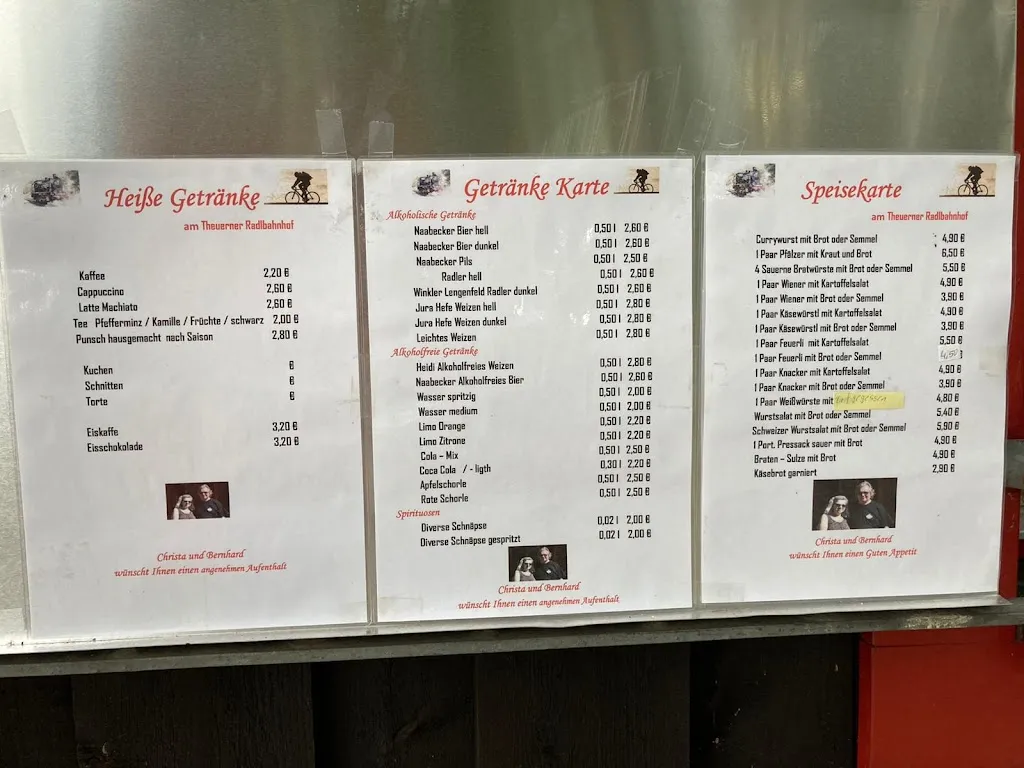 Heiße Getränke
am Theuerner Radlbahnhof
Kaffee 2,20 €
Cappuccino 2,60 €
Latte Machiato 2,60 €
Tee Pfefferminz / Kamille / Früchte / schwarz 2,00 €
Punsch hausgemacht nach Saison 2,80 €
Kuchen €
Schnitten €
Torte €
Eiskaffe 3,20 €
Eisschokolade 3,20 €
Christa und Bernhard
wünscht Ihnen einen angenehmen Aufenthalt
Getränke Karte
Alkoholische Getränke
Naabecker Bier hell 0,50 l 2,60 €
Naabecker Bier dunkel 0,50 l 2,60 €
Naabecker Pils 0,50 l 2,50 €
Radler hell 0,50 l 2,60 €
Winkler Lengenfeld Radler dunkel 0,50 l 2,60 €
Jura Hefe Weizen hell 0,50 l 2,80 €
Jura Hefe Weizen dunkel 0,50 l 2,80 €
Leichtes Weizen 0,50 l 2,80 €
Alkoholfreie Getränke
Heidi Alkoholfreies Weizen 0,50 l 2,80 €
Naabecker Alkoholfreies Bier 0,50 l 2,60 €
Wasser spritzig 0,50 l 2,00 €
Wasser medium 0,50 l 2,00 €
Limo Orange 0,50 l 2,20 €
Limo Zitrone 0,50 l 2,20 €
Cola – Mix 0,50 l 2,50 €
Coca Cola / - ligth 0,30 l 2,20 €
Apfelschorle 0,50 l 2,50 €
Rote Schorle 0,50 l 2,50 €
Spirituosen
Diverse Schnäpse 0,02 l 2,00 €
Diverse Schnäpse gespritzt 0,02 l 2,00 €
Christa und Bernhard
wünscht Ihnen einen angenehmen Aufenthalt
Speisekarte
am Theuerner Radlbahnhof
Currywurst mit Brot oder Semmel 4,90 €
1 Paar Pfälzer mit Kraut und Brot 6,50 €
4 Sauerne Bratwürste mit Brot oder Semmel 5,50 €
1 Paar Wiener mit Kartoffelsalat 4,90 €
1 Paar Wiener mit Brot oder Semmel 3,90 €
1 Paar Käsewürstl mit Kartoffelsalat 4,90 €
1 Paar Käsewürstl mit Brot oder Semmel 3,90 €
1 Paar Feuerli mit Kartoffelsalat 5,50 €
1 Paar Feuerli mit Brot oder Semmel 4,50
1 Paar Knacker mit Kartoffelsalat 4,90 €
1 Paar Knacker mit Brot oder Semmel 3,90 €
1 Paar Weißwürste mit 4,80 €
Wurstsalat mit Brot oder Semmel 5,40 €
Schweizer Wurstsalat mit Brot oder Semmel 5,90 €
1 Port. Pressack sauer mit Brot 4,90 €
Braten – Sulze mit Brot 4,90 €
Käsebrot garniert 2,90 €
Christa und Bernhard
wünscht Ihnen einen Guten Appetit